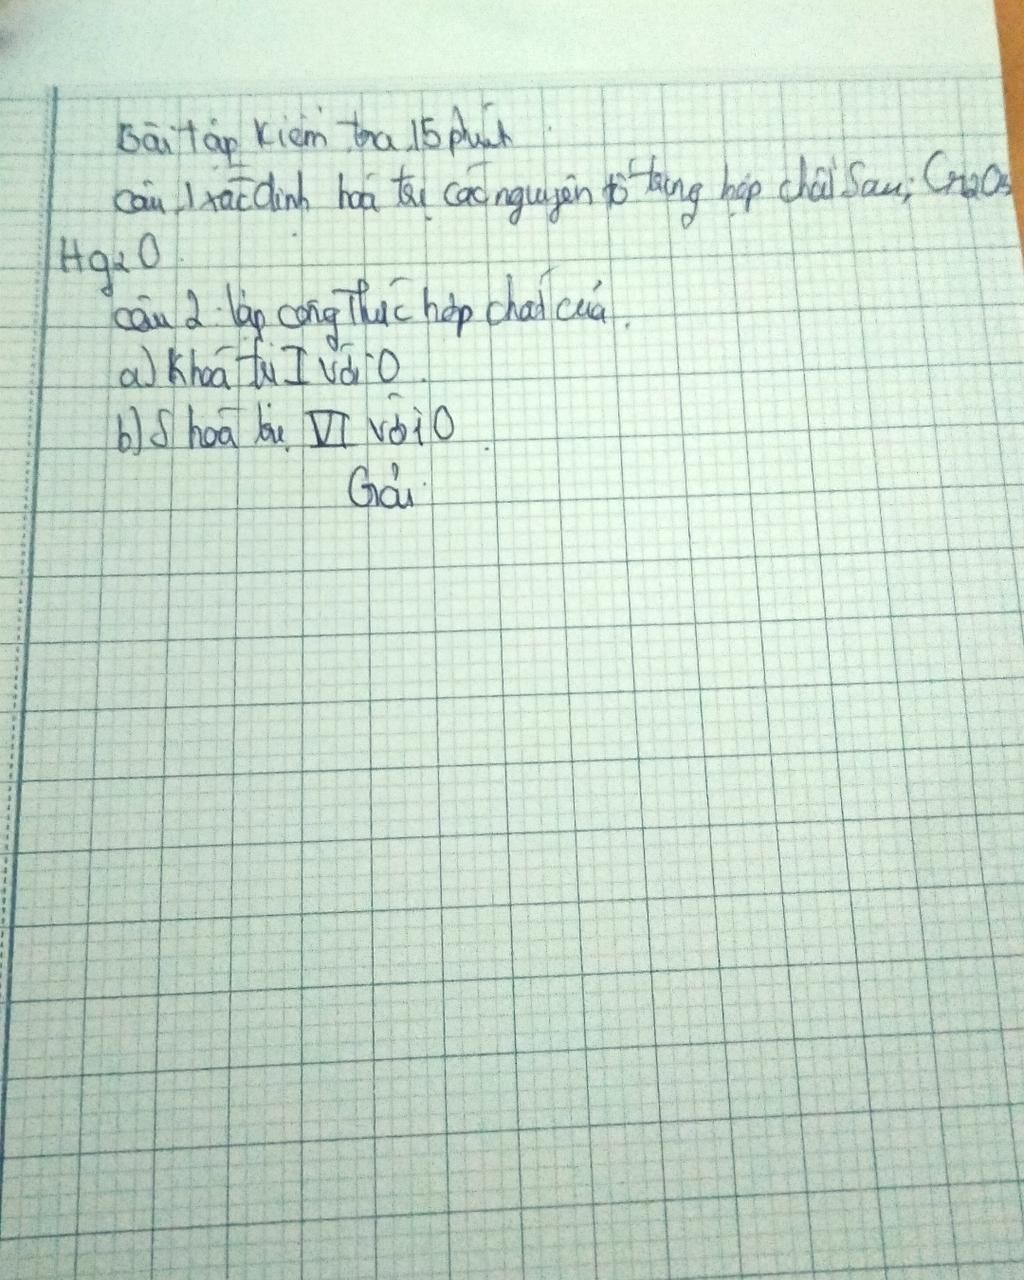 Bài tập kiểm tra 15 phút
câu 1 xác định hoá trị các nguyên tố trong hợp chất sau; Cr2O3
Hg2O.
câu 2. lập công thức hợp chất của.
a) K hoá trị I với O.
b) S hoá trị VI với O.
Giải